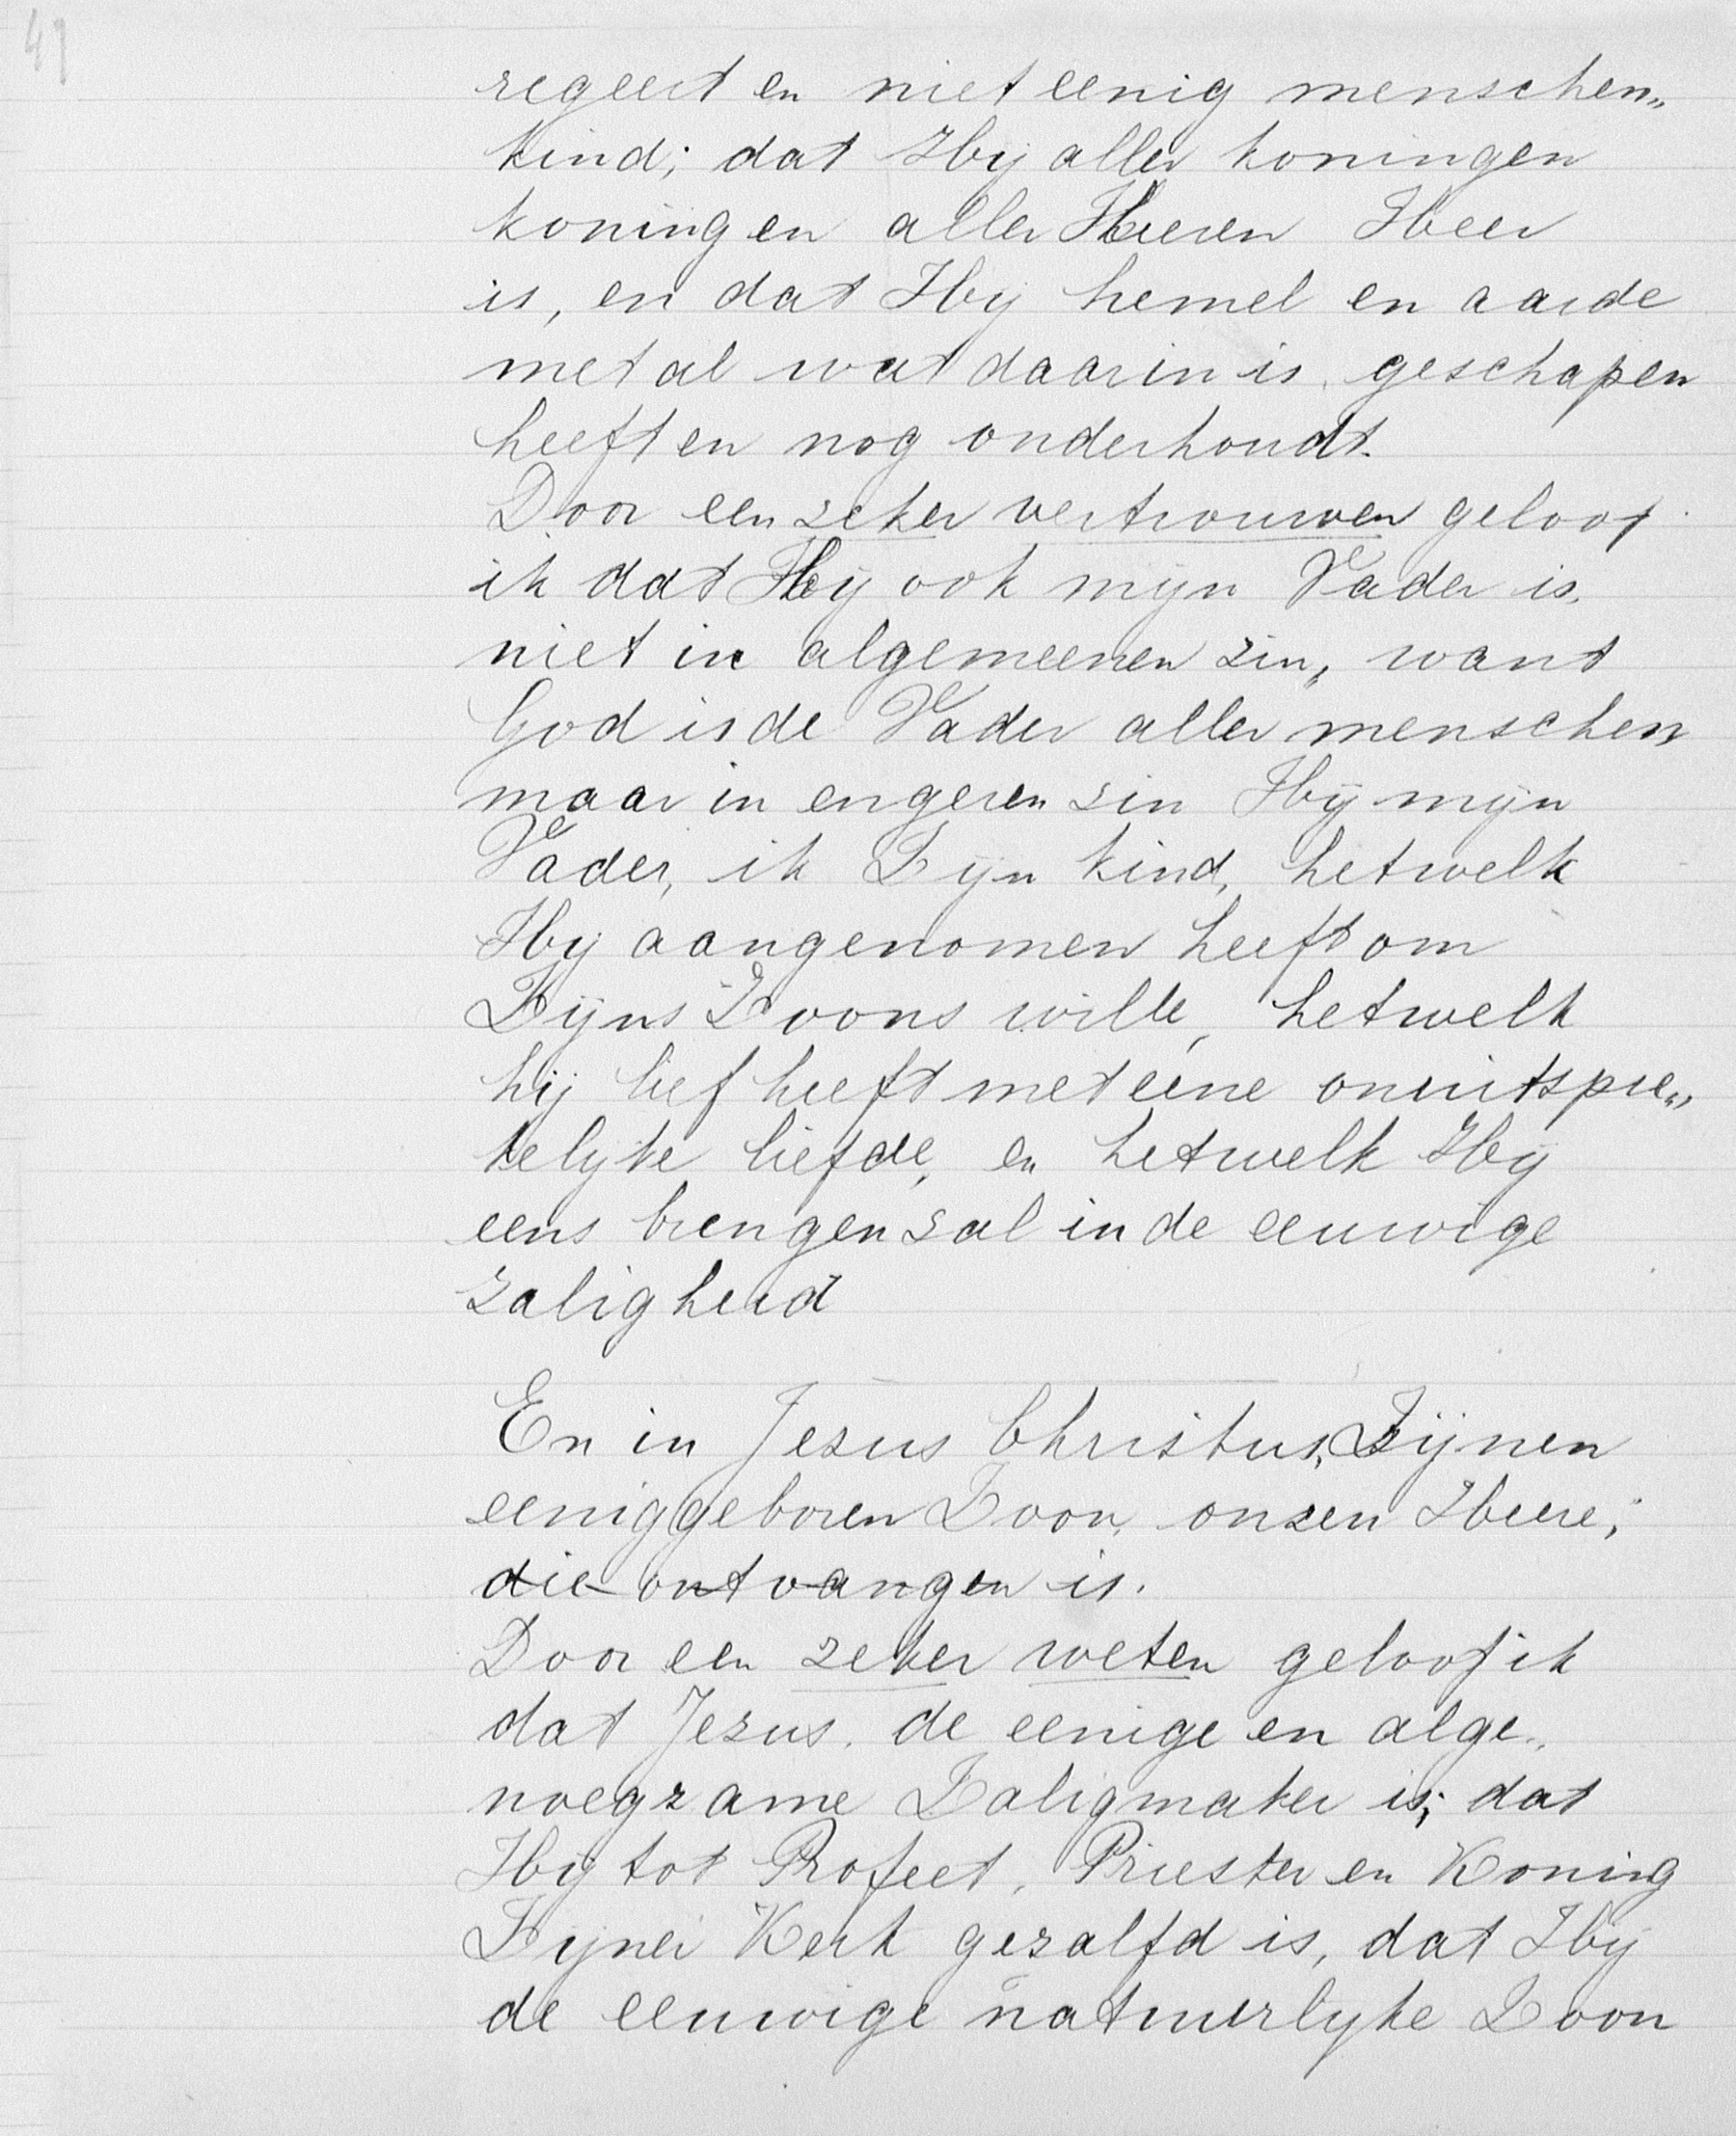 41
regeert en niet eenig menschen„
kind; dat Hij aller koningen
koning en aller Heeren Heer
is, en dat Hij hemel en aarde
met al wat daarin is, geschapen
heeft en nog onderhoudt.
Door een zeker vertrouwen geloof
ik dat Hij ook mijn Vader is,
niet in algemeenen zin, want
God is de Vader aller menschen
maar in engeren zin Hij mijn
Vader, ik Zijn kind, hetwelk
Hij aangenomen heeft om
Zijns Zoons wille, hetwelk
hij lief heeft met eene onuitspre„
kelijke liefde, en hetwelk Hij
eens brengen zal in de eeuwige
zaligheid
En in Jezus Christus, Zijnen
eeniggeboren Zoon, onzen Heere;
die ontvangen is.
Door een zeker weten geloof ik
dat Jezus, de eenige en alge„
noegzame Zaligmaker is; dat
Hij tot Profeet, Priester en Koning
Zijner Kerk gezalfd is, dat Hij
de eeuwige natuurlijke Zoon